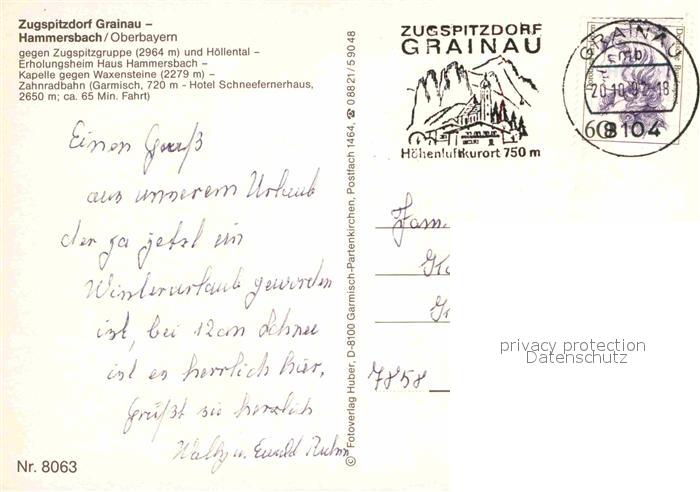 Zugspitzdorf Grainau –
Hammersbach/Oberbayern
gegen Zugspitzgruppe (2964 m) und Höllental –
Erholungsheim Haus Hammersbach –
Kapelle gegen Waxensteine (2279 m) –
Zahnradbahn (Garmisch, 720 m - Hotel Schneefernerhaus,
2650 m; ca. 65 Min. Fahrt)
Einen Gruß
aus unserem Urlaub
der ja jetzt ein
Winterurlaub geworden
ist, bei 12cm Schnee
ist es herrlich hier,
Grüßt sie herzlich
Wally u. Ewald
Nr. 8063
© Fotoverlag Huber, D-8100 Garmisch-Partenkirchen, Postfach 1464, ☎ 0 88 21 / 5 90 48
ZUGSPITZDORF
GRAINAU
Höhenluftkurort 750 m
GRAINAU
mb
20.10.92-18
8104
60
Fam.
7858
privacy protection
Datenschutz